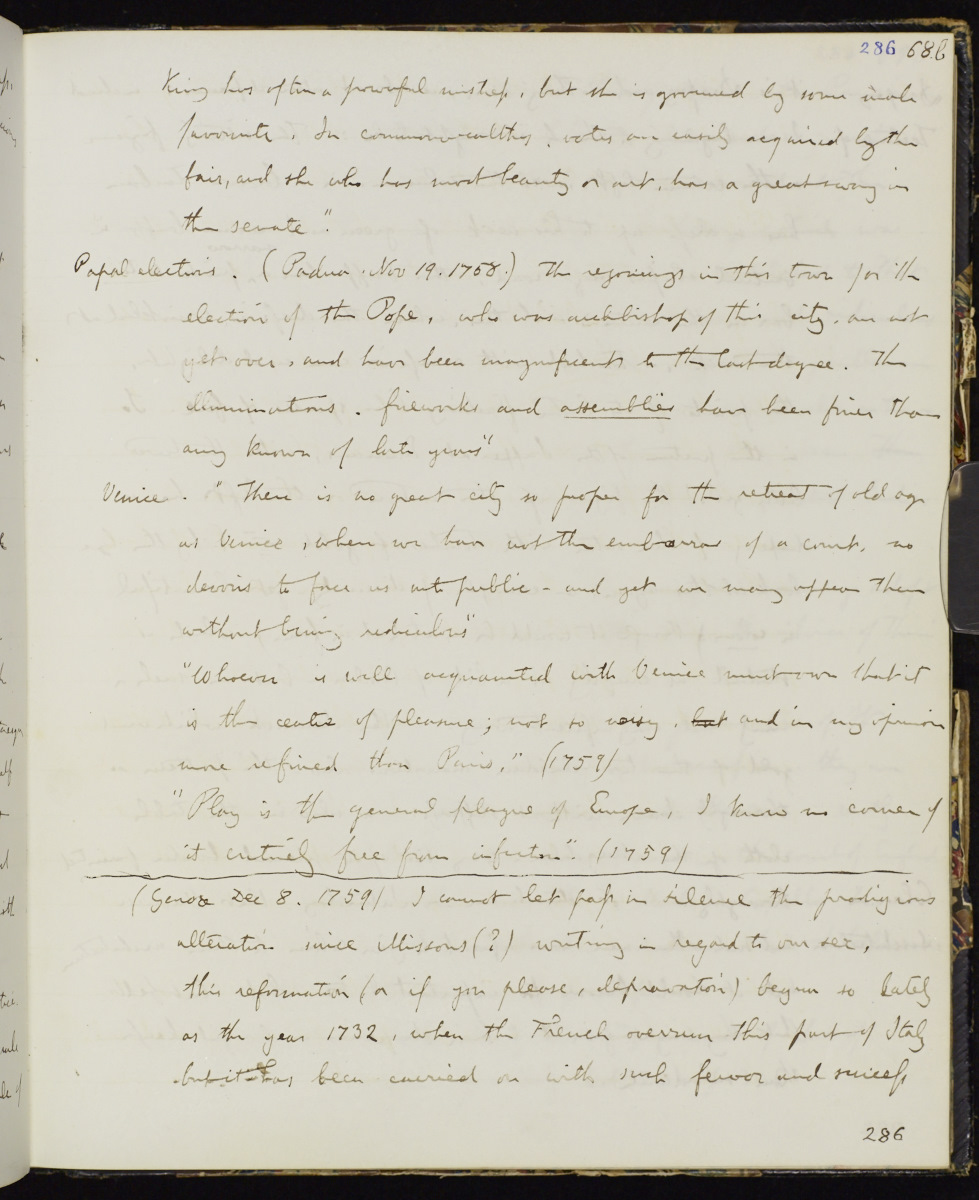 286 686
King has often a powerful mistress, but she is governed by some male
favourite. In commonwealths, votes are easily acquired by the
fair, and she who has most beauty or art, has a great sway in
the senate".
Papal elections. (Padua. Nov 19. 1758.) The rejoicings in this town for the
election of the Pope, who was archbishop of this city, are not
yet over, and have been magnificent to the last degree. The
illuminations, fireworks and assemblies have been finer than
any known of late years"
Venice. "There is no great city so proper for the retreat of old age
as Venice, where we have not the embarras of a court, no
devoirs to force us into public - and yet we may appear there
without being ridiculous"
"Whoever is well acquainted with Venice must own that it
is the centre of pleasure; not so noisy, but and in my opinion
more refined than Paris." (1759)
"Play is the general plague of Europe, I know no corner of
it entirely free from infection". (1759)
(Genoa Dec 8. 1759) I cannot let pass in silence the prodigious
alteration since Missons (?) writing in regard to our sex,
this reformation (or if you please, depravation) began so lately
as the year 1732, when the French overrun this part of Italy
but it has been carried on with such fervor and success
286